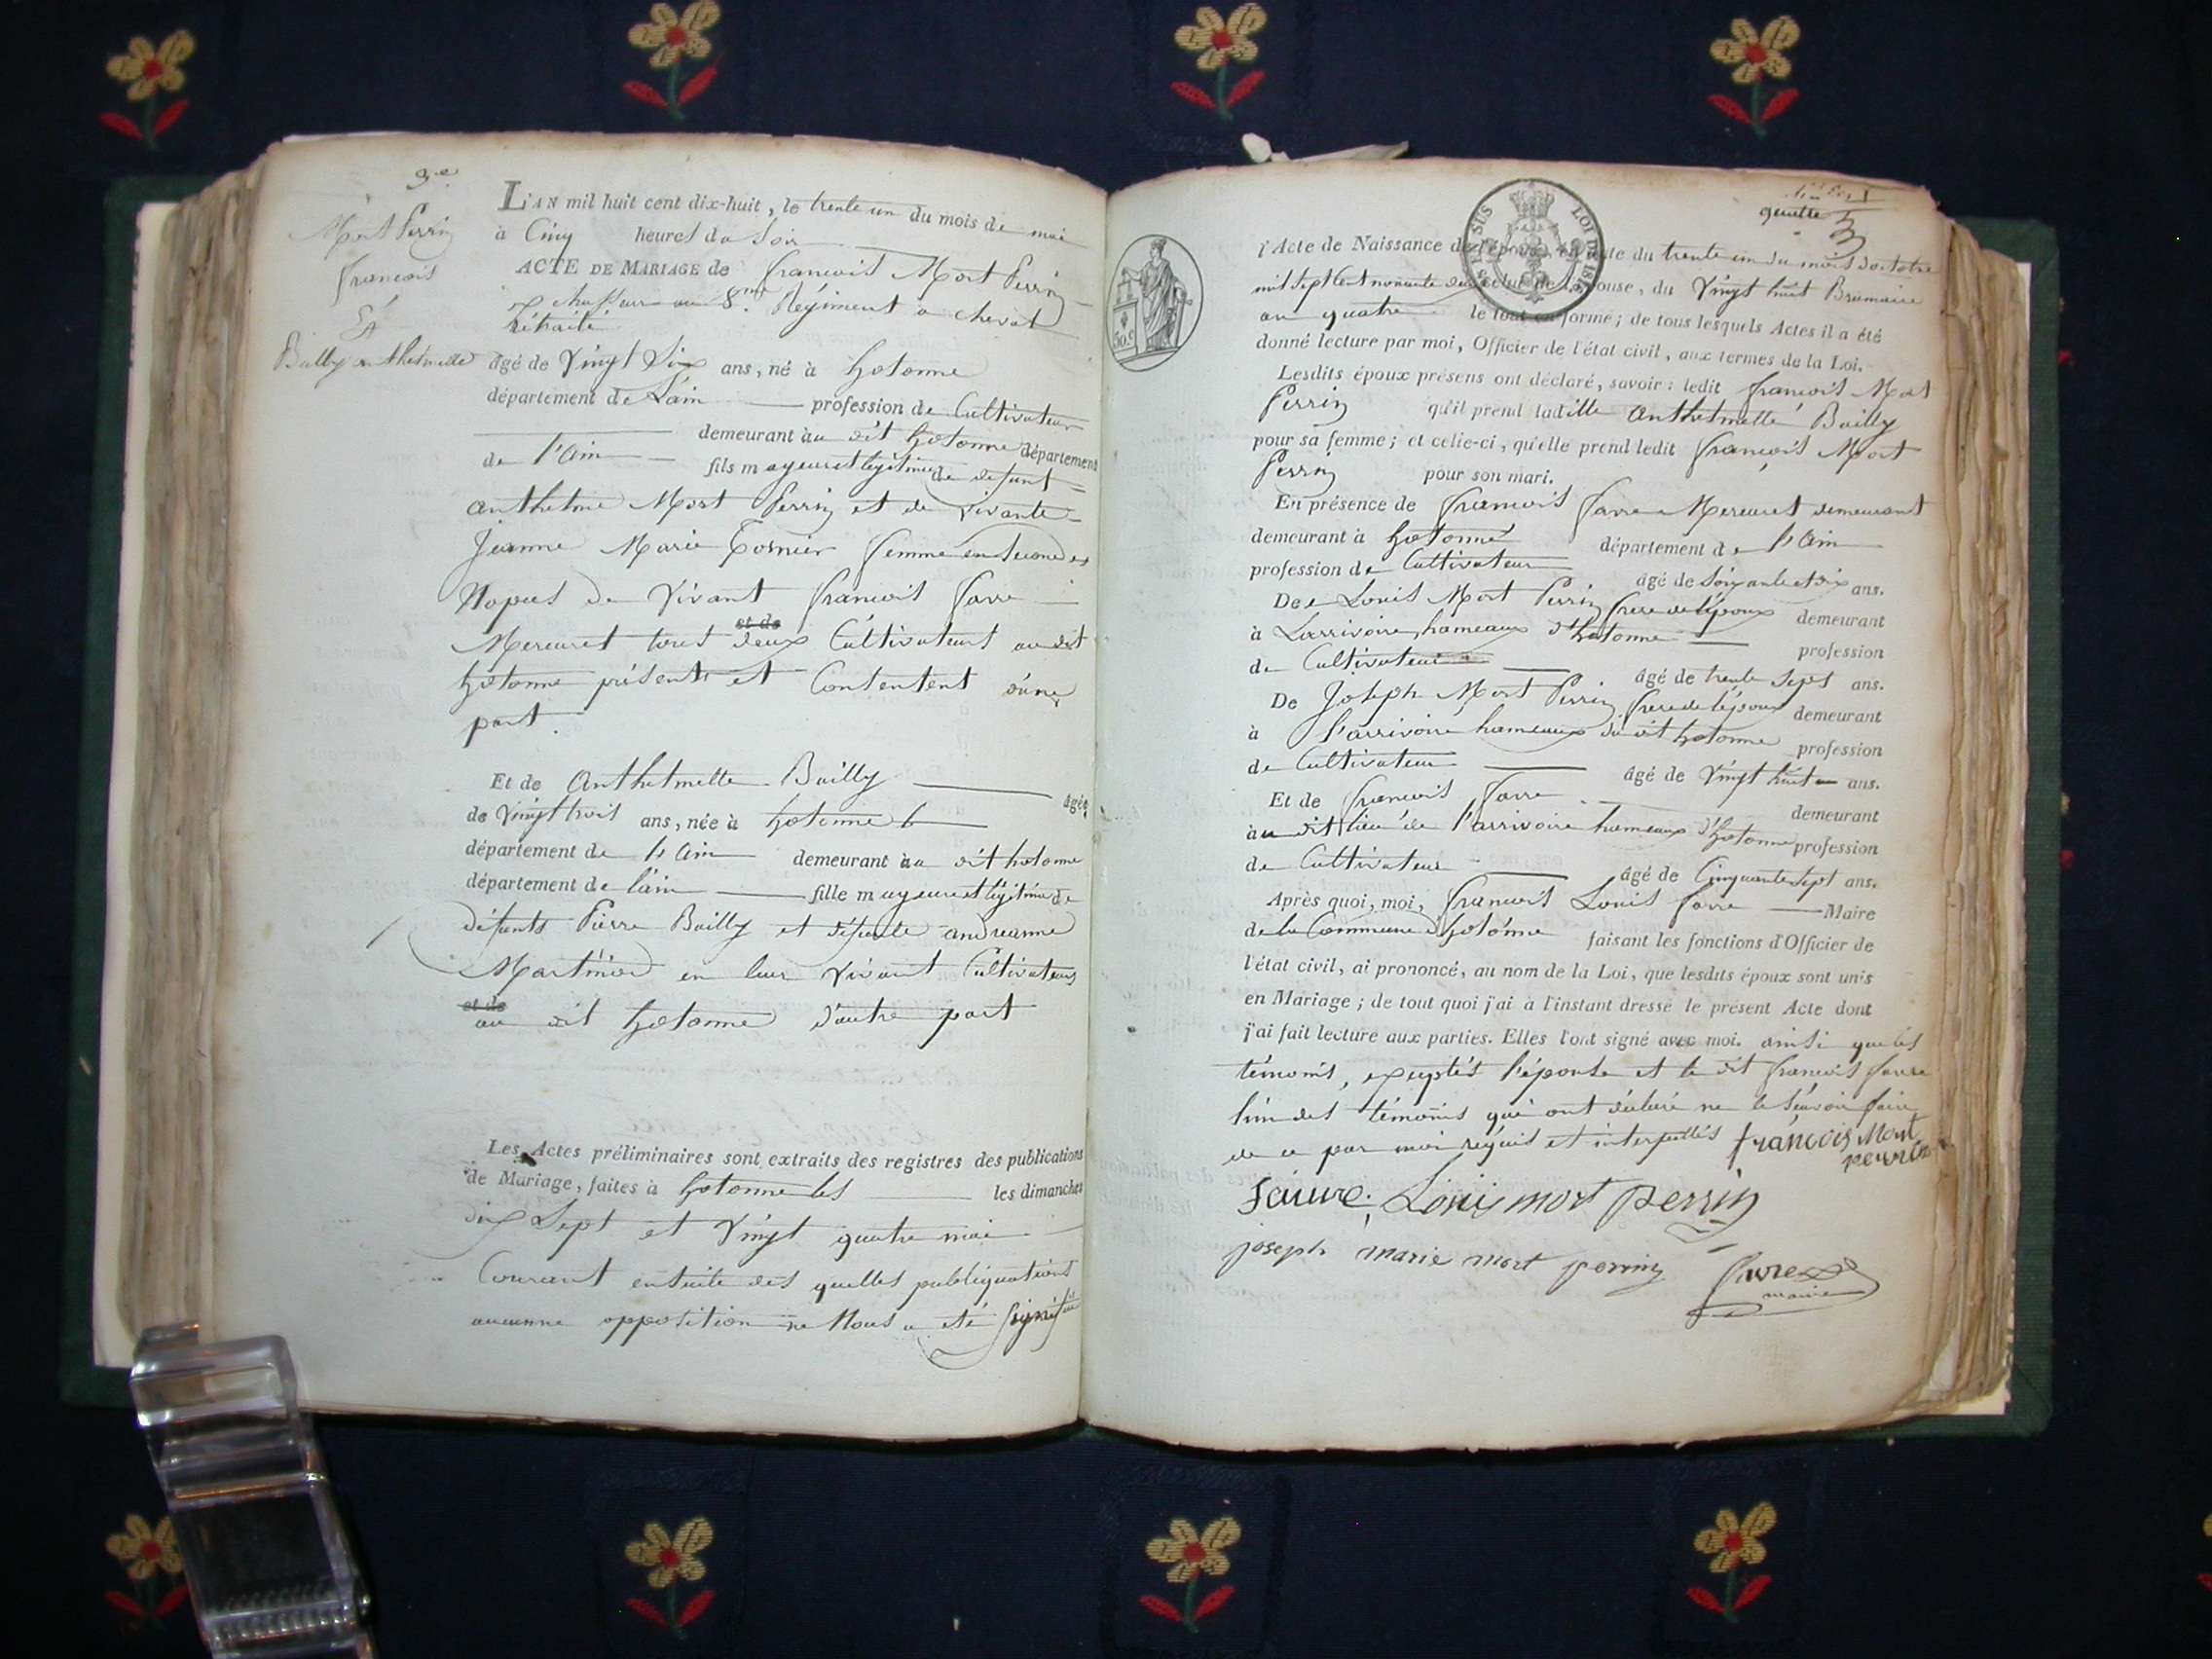 9.e
Mort Perrin
francois
Et
Bailly anthelmette
L'AN mil huit cent dix-huit, le trente un du mois de mai
à Cinq heures du Soir
ACTE DE MARIAGE de francois Mort Perrin
chasseur au 8.me Régiment a cheval
rétraité
âgé de Vingt Six ans, né à hotonne
département de L'ain profession de Cultivateur
demeurant àu dit hotonne département
de l'Ain fils mayeur et légitime de defunt
anthelme Mort Perrin et de vivante
Jeanne Marie Tornier femme en Secondes
Nopces de Vivant francois favre
et de
Mercuret tous deux Cultivateurs au dit
hotonne présents et Consentent d'une
part.
Et de Anthelmette Bailly âgée
de Vingt trois ans, née à hotonne
département de l'Ain demeurant àu dit hotonne
département de l'ain fille mayeure et légitime de
défunts Pierre Bailly et défunte andreanne
Martinod en leur vivant Cultivateurs
et de
au dit hotonne d'autre part
Les Actes préliminaires sont extraits des registres des publications
de Mariage, faites à hotonne les les dimanches
dix Sept et Vingt quatre mai
Courant ensuite des quelles publiquations
aucunne opposition ne Nous a été signifiée
SUS EN SUS
LOI DE 1816
50.c
quatre
l'Acte de Naissance de l'époux, en date du trente un du mois d'octobre
mil sept Cent nonante deux celui de l'épouse, du Vingt huit Brumaire
an quatre le tout en forme; de tous lesquels Actes il a été
donné lecture par moi, Officier de l'état civil, aux termes de la Loi.
Lesdits époux présens ont déclaré, savoir: ledit francois Mort
Perrin qu'il prend ladille Anthelmette Bailly
pour sa femme; et celie-ci, qu'elle prend ledit françois Mort
Perrin pour son mari.
En présence de francois favre Mercuret demeurant
demeurant à hotonne département de l'Ain
profession de Cultivateur âgé de Soixante et dix ans.
De Louis Mort Perrin frere de l'époux demeurant
à Larrivoire hameaux d'hotonne profession
de Cultivateur âgé de trente Sept ans.
De Joseph Mort Perrin frere de l'époux demeurant
à l'arrivoire hameaux du dit hotonne profession
de Cultivateur âgé de Vingt huit ans.
Et de francois favre demeurant
àu dit lieu de l'arrivoire hameaux d'hotonne profession
de Cultivateur âgé de Cinquante Sept ans.
Après quoi, moi, francois Louis favre Maire
de la Commune d'hotonne faisant les fonctions d'Officier de
l'état civil, ai prononcé, au nom de la Loi, que lesdits époux sont unis
en Mariage; de tout quoi j'ai à l'instant dressé le présent Acte dont
j'ai fait lecture aux parties. Elles l'ont signé avec moi. ainsi que les
témoins, exceptés l'épouse et le dit francois favre
l'un des témoins qui ont déclaré ne le Sçavoir faire
de ce par moi requis et interpellés françois Mort
perrin
favre Louis mort perrin
joseph marie mort perrin favre
maire